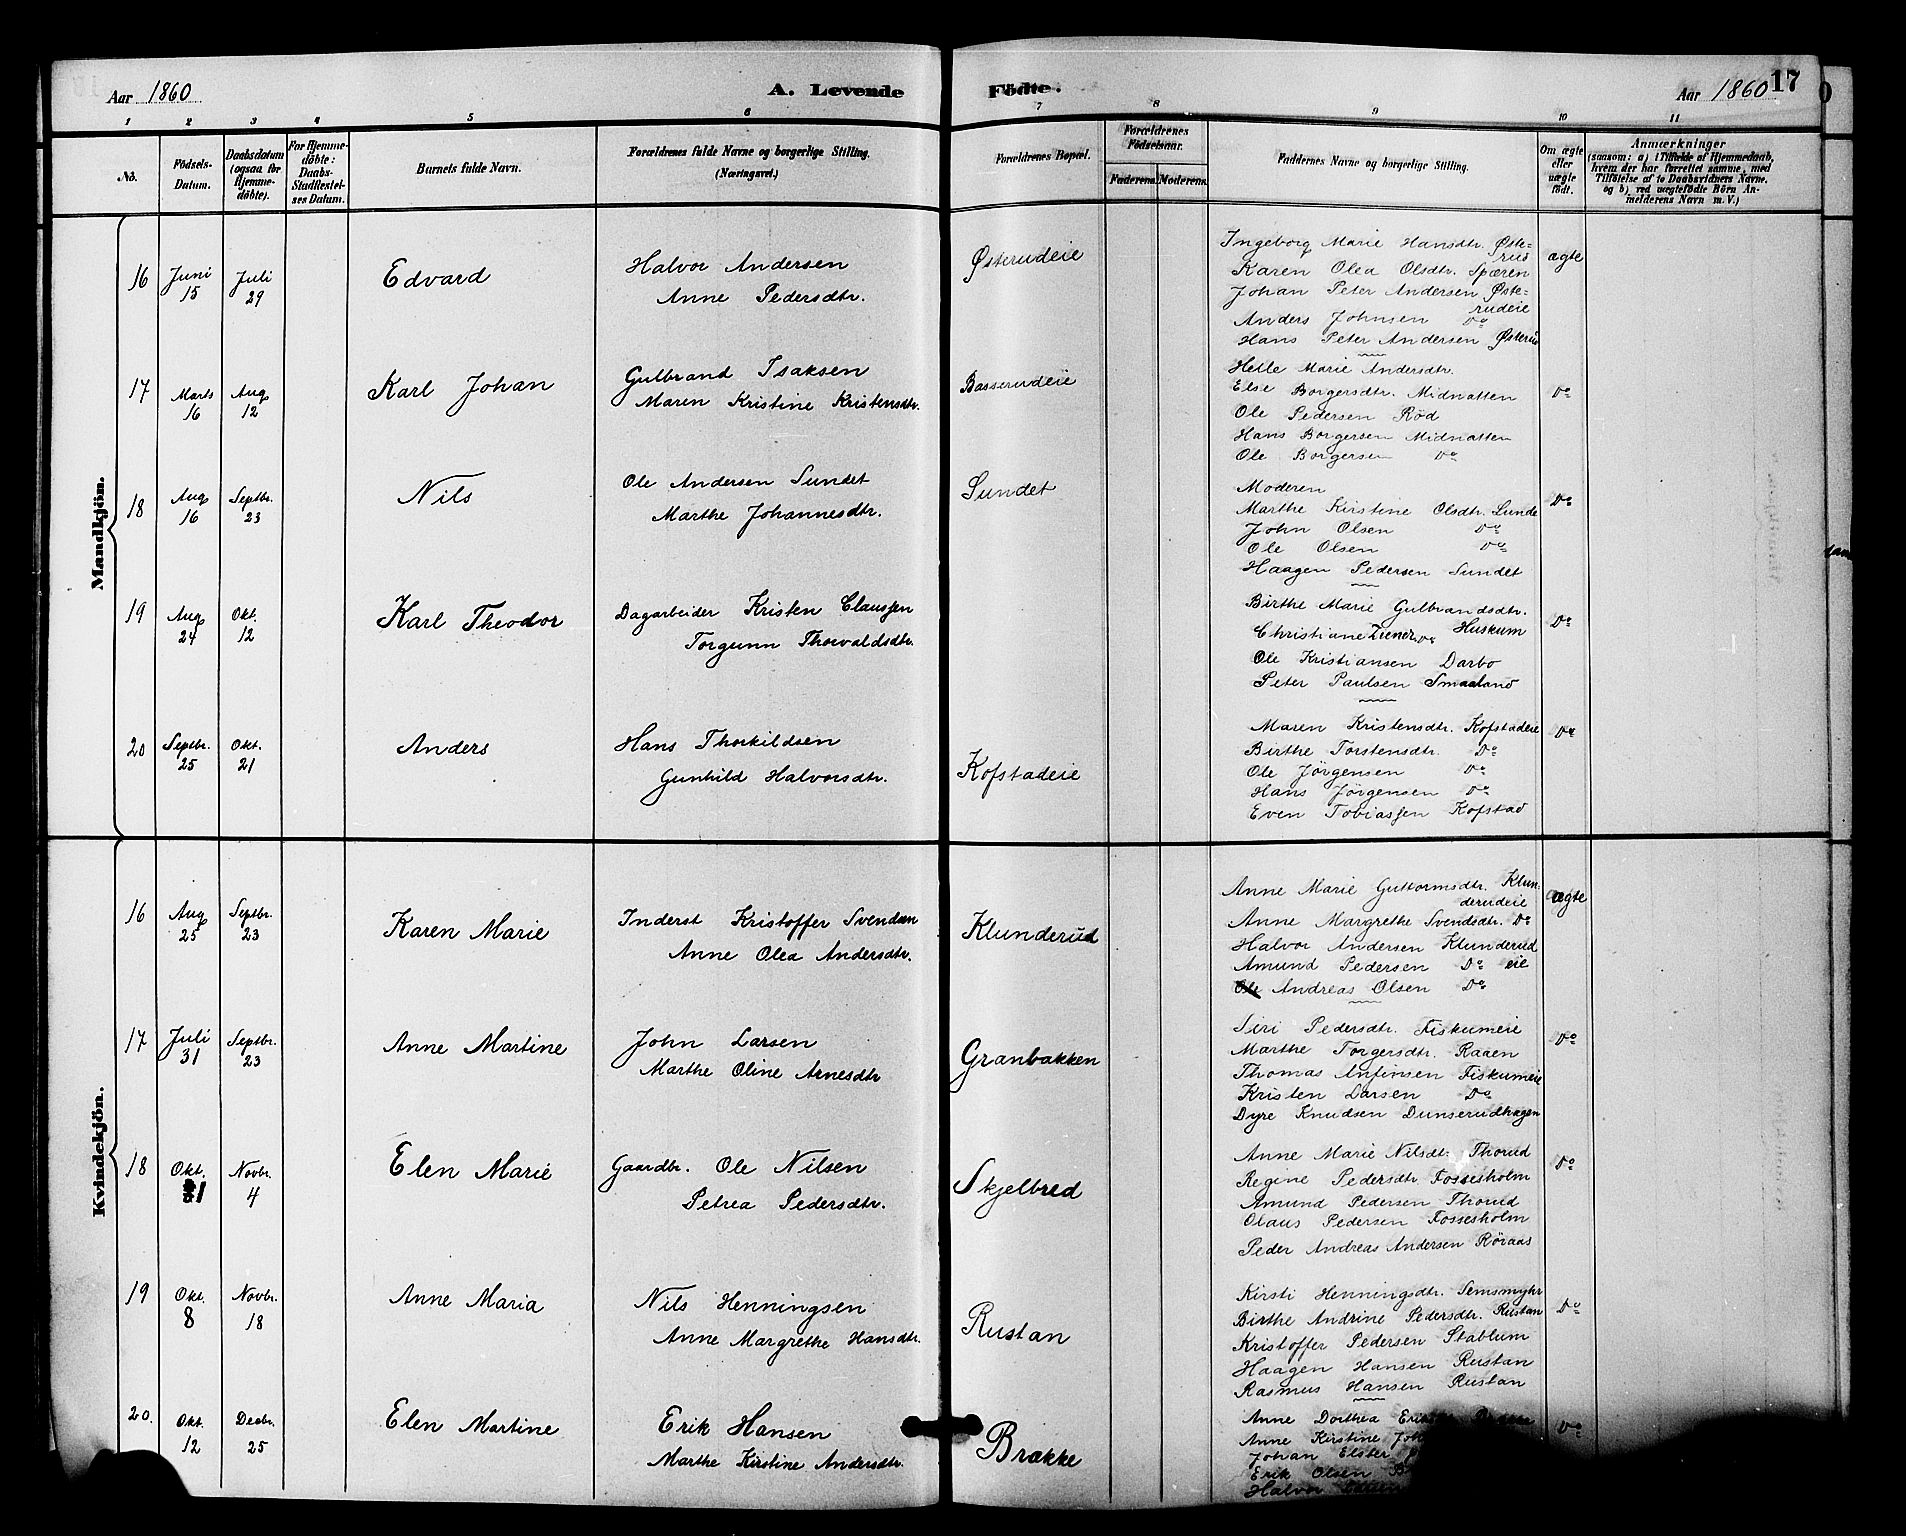 Aar 1860
A. Levende
Födte.
Aar 1860
17
1 2 3 4 5 6 7 8 9 10 11
No.
Födsels-
Datum.
Daabsdatum
(ogsaa for
Hjemme-
döbte).
For Hjemme-
döbte:
Daabs-
Stadfæstel-
ses Datum.
Barnets fulde Navn.
Forældrenes fulde Navne og borgerlige Stilling.
(Næringsvei.)
Forældrenes Bopæl.
Forældrenes
Födselsaar.
Faderens. Moderens.
Faddernes Navne og borgerlige Stilling.
Om ægte
eller
uægte
födt.
Anmærkninger
(saasom: a) i Tilfælde af Hjemmedaab,
hvem der har forrettet samme, med
Tilföielse af to Daabsvidners Navne.
og b) ved uægtefödte Börn An-
melderens Navn m. V.)
Mandkjön.
16 Juni 15 Juli 29 Edvard
Halvor Andersen
Anne Pedersdtr.
Østerudeie
Ingeborg Marie Hansdtr. Øste-
rud
Karen Olea Olsdtr. Spæren
Johan Peter Andersen Øste-
rudeie
Anders Johnsen Do
Hans Peter Andersen Østerud
ægte
17 Marts 16 Aug 12 Karl Johan
Gulbrand Isaksen
Maren Kristine Kristensdtr.
Basserudeie
Helle Marie Andersdtr.
Else Borgersdtr. Midnatten
Ole Pedersen Röd
Hans Borgersen Midnatten
Ole Borgersen Do
Do
18 Aug 16 Septbr. 23 Nils
Ole Andersen Sundet
Marthe Johannesdtr.
Sundet
Moderen
Marthe Kirstine Olsdtr. Lunde
John Olsen Do
Ole Olsen Do
Haagen Pedersen Sundet
Do
19 Aug 24 Okt. 12 Karl Theodor
Dagarbeider Kristen Claussen
Torgunn Thorvaldsdtr.
Birthe Marie Gulbrandsdtr.
Christiane Huskum
Ole Kristiansen Darbo
Peter Paulsen Smaaland
Do
20 Septbr. 25 Okt. 21 Anders
Hans Thorkildsen
Gunhild Halvorsdtr.
Kofstadeie
Maren Kristensdtr. Kofstadeie
Birthe Torstensdtr. Do
Ole Jörgensen Do
Hans Jörgensen Do
Even Tobiassen Kofstad
Do
Kvindekjön.
16 Aug 25 Septbr. 23 Karen Marie
Inderst Kristoffer Svendsen
Anne Olea Andersdtr.
Klunderud
Anne Marie Guttormsdtr. Klun-
derudeie
Anne Margrethe Svendsdtr. Do
Halvor Andersen Klunderud
Amund Pedersen Do eie
Andreas Olsen Do
ægte
17 Juli 31 Septbr. 23 Anne Martine
John Larsen
Marthe Oline Arnesdtr
Granbakken
Siri Pedersdtr. Fiskumeie
Marthe Torgersdtr. Raaen
Thomas Anfinsen Fiskumeie
Kristen Larsen Do
Dyre Knudsen Dunserudhagen
Do
18 Okt. 1 Novbr. 4 Elen Marie
Gaardbr. Ole Nilsen
Petrea Pedersdtr.
Skjelbred
Anne Marie Nilsdtr. Thorud
Regine Pedersdtr. Fossesholm
Amund Pedersen Thorud
Olaus Pedersen Fossesholm
Peder Andreas Andersen Röraas
Do
19 Okt. 8 Novbr. 18 Anne Maria
Nils Henningsen
Anne Margrethe Hansdtr.
Rustan
Kirsti Henningsdtr. Semsmyhr
Birthe Andrine Pedersdtr. Rustan
Kristoffer Pedersen Stablum
Haagen Hansen Rustan
Rasmus Hansen Rustan
Do
20. Okt. 12 Decbr. 25 Elen Martine
Erik Hansen
Marthe Kirstine Andersdtr.
Brække
Anne Dorthea
Anne Kirstine
Johan Elster
Erik Olsen
Halvor
Do